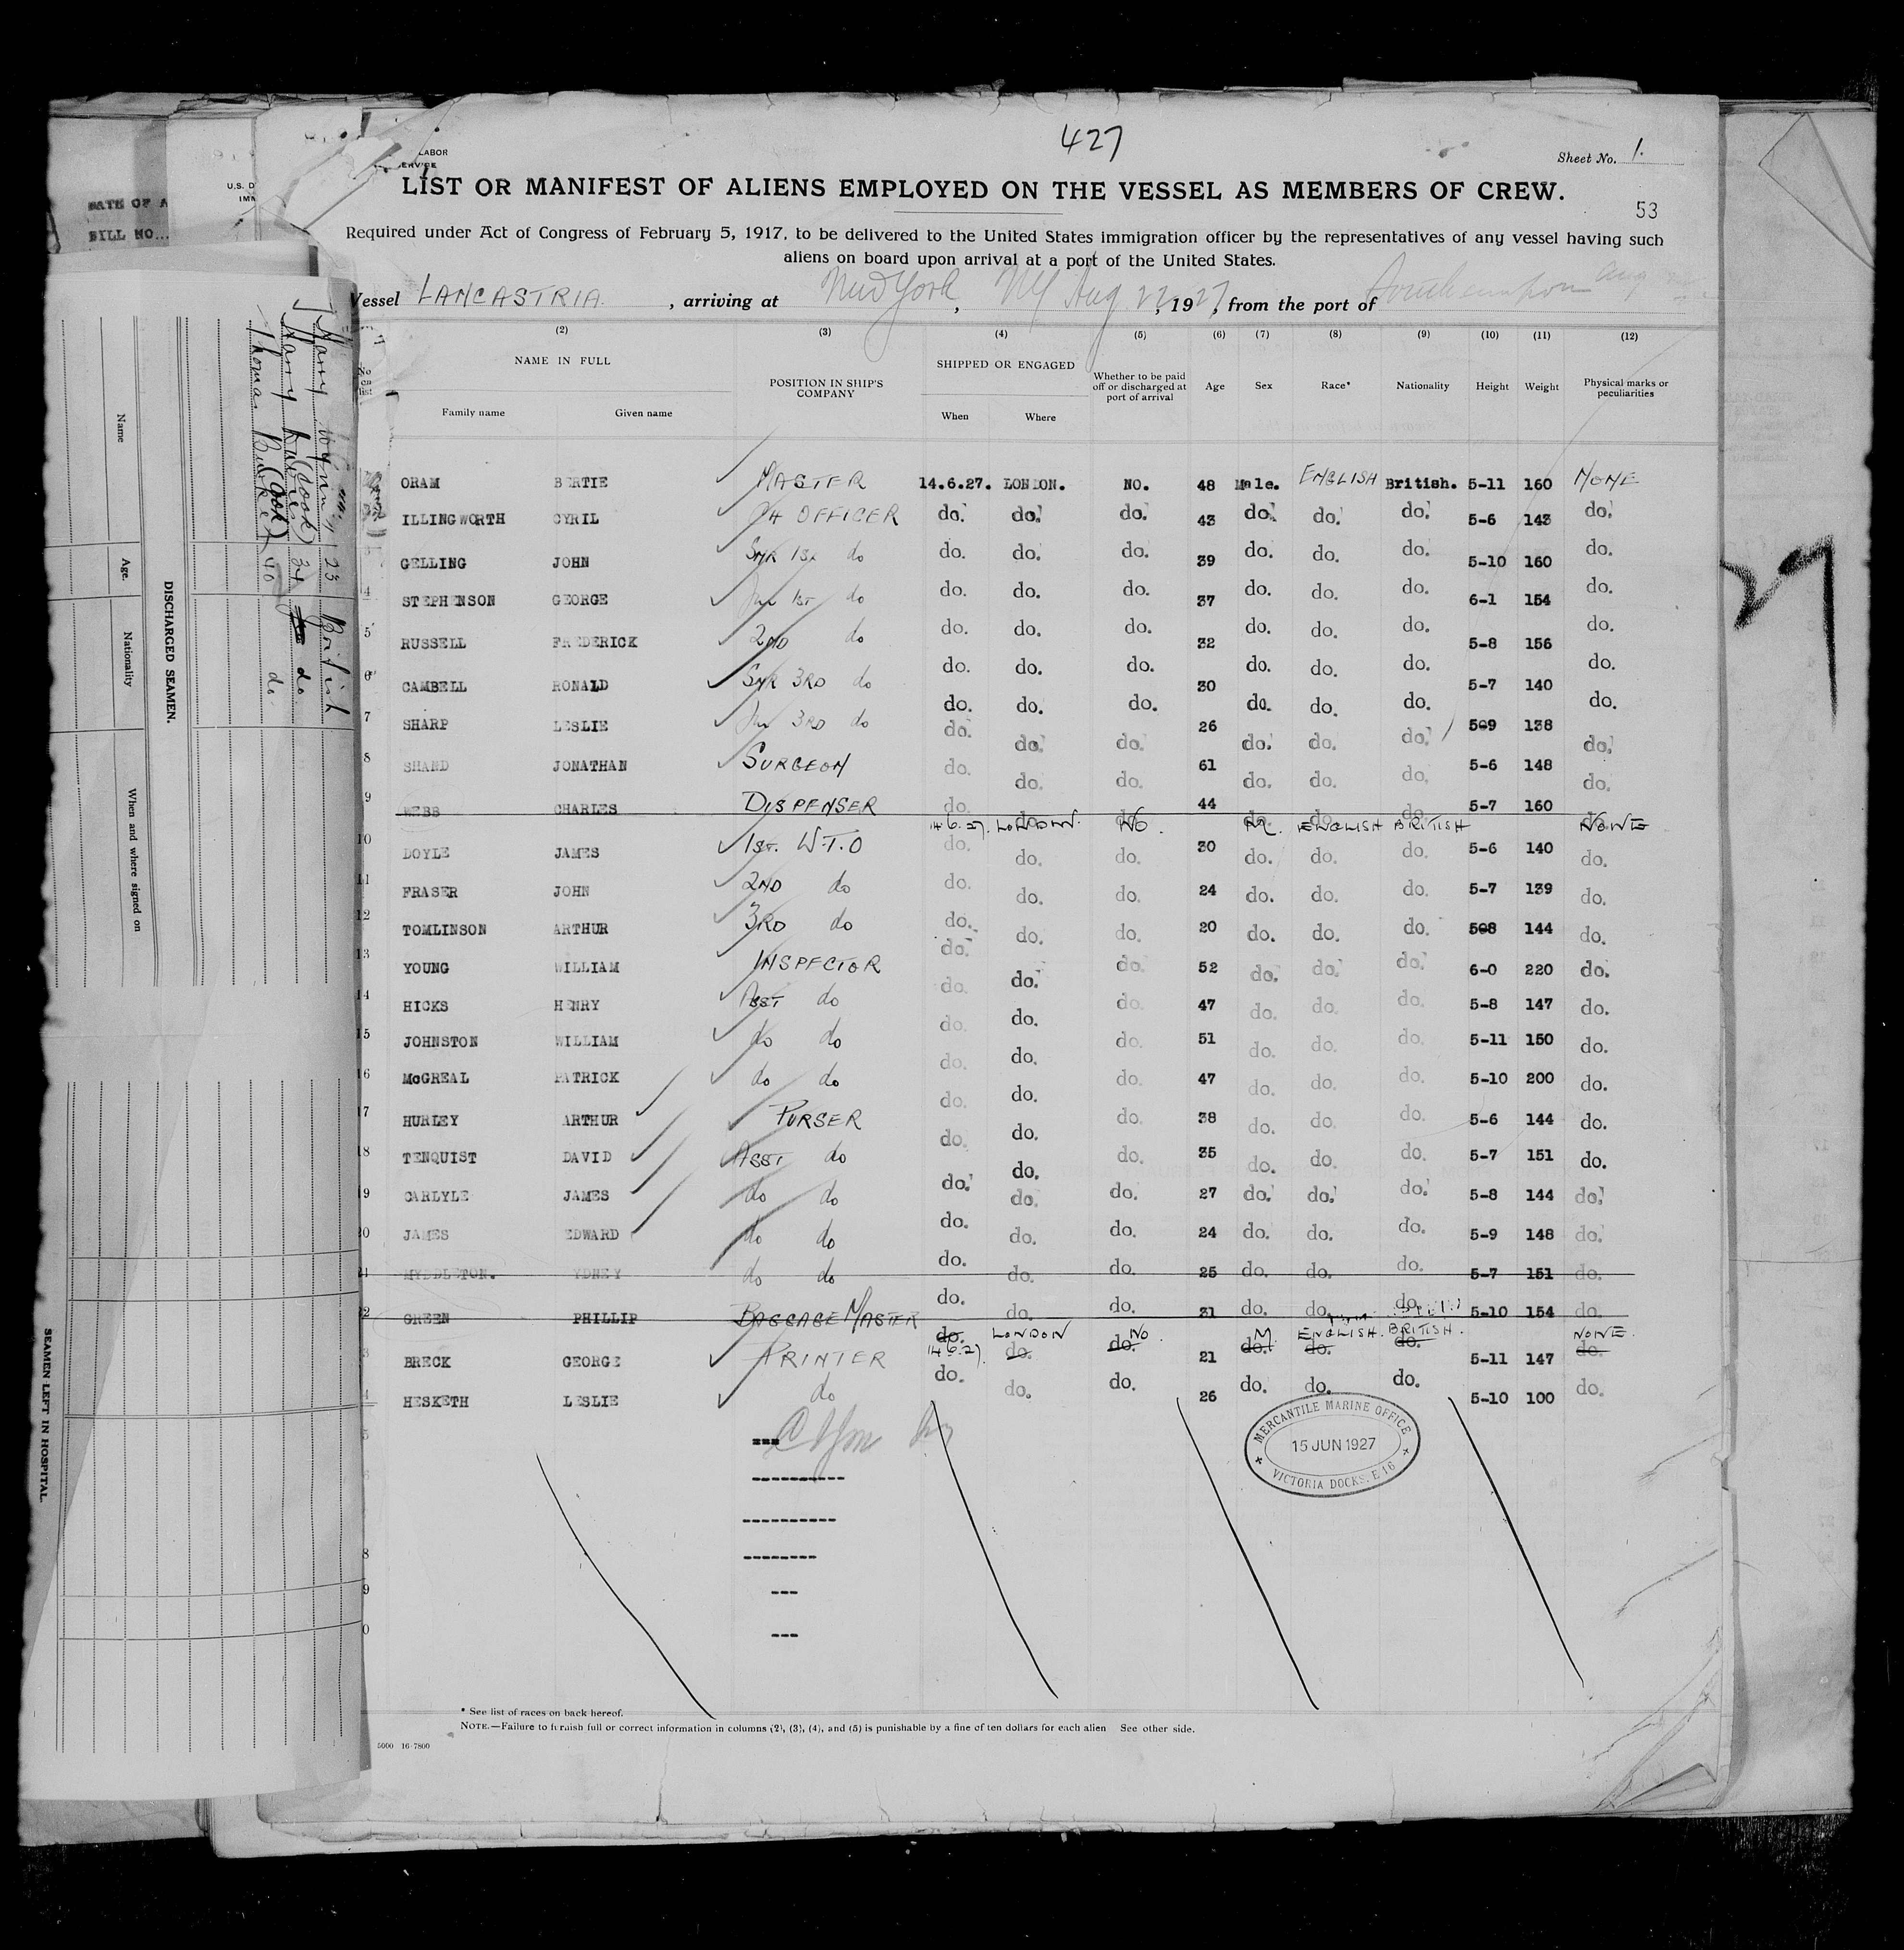 427
LABOR
Sheet No. 1.
LIST OR MANIFEST OF ALIENS EMPLOYED ON THE VESSEL AS MEMBERS OF CREW.
53
Required under Act of Congress of February 5, 1917, to be delivered to the United States immigration officer by the representatives of any vessel having such
aliens on board upon arrival at a port of the United States.
Vessel LANCASTRIA, arriving at New York, NY Aug 22, 1927, from the port of Southampton Aug
(2) (3) (4) (5) (6) (7) (8) (9) (10) (11) (12)
NAME IN FULL POSITION IN SHIP'S COMPANY SHIPPED OR ENGAGED Whether to be paid off or discharged at port of arrival Age Sex Race* Nationality Height Weight Physical marks or peculiarities
Family name Given name When Where
ORAM BERTIE MASTER 14.6.27. LONDON. NO. 48 Male. ENGLISH British. 5-11 160 NONE
ILLINGWORTH CYRIL CH OFFICER do. do. do. 43 do. do. do. 5-6 143 do.
3 GELLING JOHN SNR 1ST do do. do. do. 39 do. do. do. 5-10 160 do.
4 STEPHENSON GEORGE Jnr 1ST do do. do. do. 37 do. do. do. 6-1 154 do.
5 RUSSELL FREDERICK 2ND do do. do. do. 32 do. do. do. 5-8 156 do.
6 CAMBELL RONALD SNR 3RD do do. do. do. 30 do. do. do. 5-7 140 do.
7 SHARP LESLIE Jnr 3RD do do. do. do. 26 do. do. do. 509 138 do.
8 SHAND JONATHAN SURGEON do. do. do. 61 do. do. do. 5-6 148 do.
9 WEBB CHARLES DISPENSER do. do. do. 44 do. do. do. 5-7 160 do.
14.6.27. LONDON. NO. M. ENGLISH BRITISH NONE
10 DOYLE JAMES 1ST. W.T.O do. do. do. 30 do. do. do. 5-6 140 do.
11 FRASER JOHN 2ND do do. do. do. 24 do. do. do. 5-7 139 do.
12 TOMLINSON ARTHUR 3RD do do. do. do. 20 do. do. do. 508 144 do.
13 YOUNG WILLIAM INSPECTOR do. do. do. 52 do. do. do. 6-0 220 do.
14 HICKS HENRY ASST do do. do. do. 47 do. do. do. 5-8 147 do.
15 JOHNSTON WILLIAM do do do. do. do. 51 do. do. do. 5-11 150 do.
16 McGREAL PATRICK do do do. do. do. 47 do. do. do. 5-10 200 do.
17 HURLEY ARTHUR PURSER do. do. do. 38 do. do. do. 5-6 144 do.
18 TENQUIST DAVID ASST do do. do. do. 35 do. do. do. 5-7 151 do.
19 CARLYLE JAMES do do do. do. do. 27 do. do. do. 5-8 144 do.
20 JAMES EDWARD do do do. do. do. 24 do. do. do. 5-9 148 do.
21 MYDDLETON. YDNEY do do do. do. do. 25 do. do. do. 5-7 151 do.
22 GREEN PHILLIP BAGGAGE MASTER do. do. do. 31 do. do. do. 5-10 154 do.
do. LONDON NO. M. ENGLISH. BRITISH. NONE.
3 BRECK GEORGE PRINTER 14.6.27. do. do. 21 do. do. do. 5-11 147 do.
4 HESKETH LESLIE do do. do. do. 26 do. do. do. 5-10 100 do.
MERCANTILE MARINE OFFICE
15 JUN 1927
VICTORIA DOCKS. E16
8
9
0
* See list of races on back hereof.
NOTE.—Failure to furnish full or correct information in columns (2), (3), (4), and (5) is punishable by a fine of ten dollars for each alien See other side.
5000 16-7800
DATE OF A
BILL NO...
U.S. D
IMM
SEAMEN LEFT IN HOSPITAL.
DISCHARGED SEAMEN.
Name Age. Nationality When and where signed on
23 British
Harry (Cook) 34 do.
Thomas Burke (Cook) 40 do.